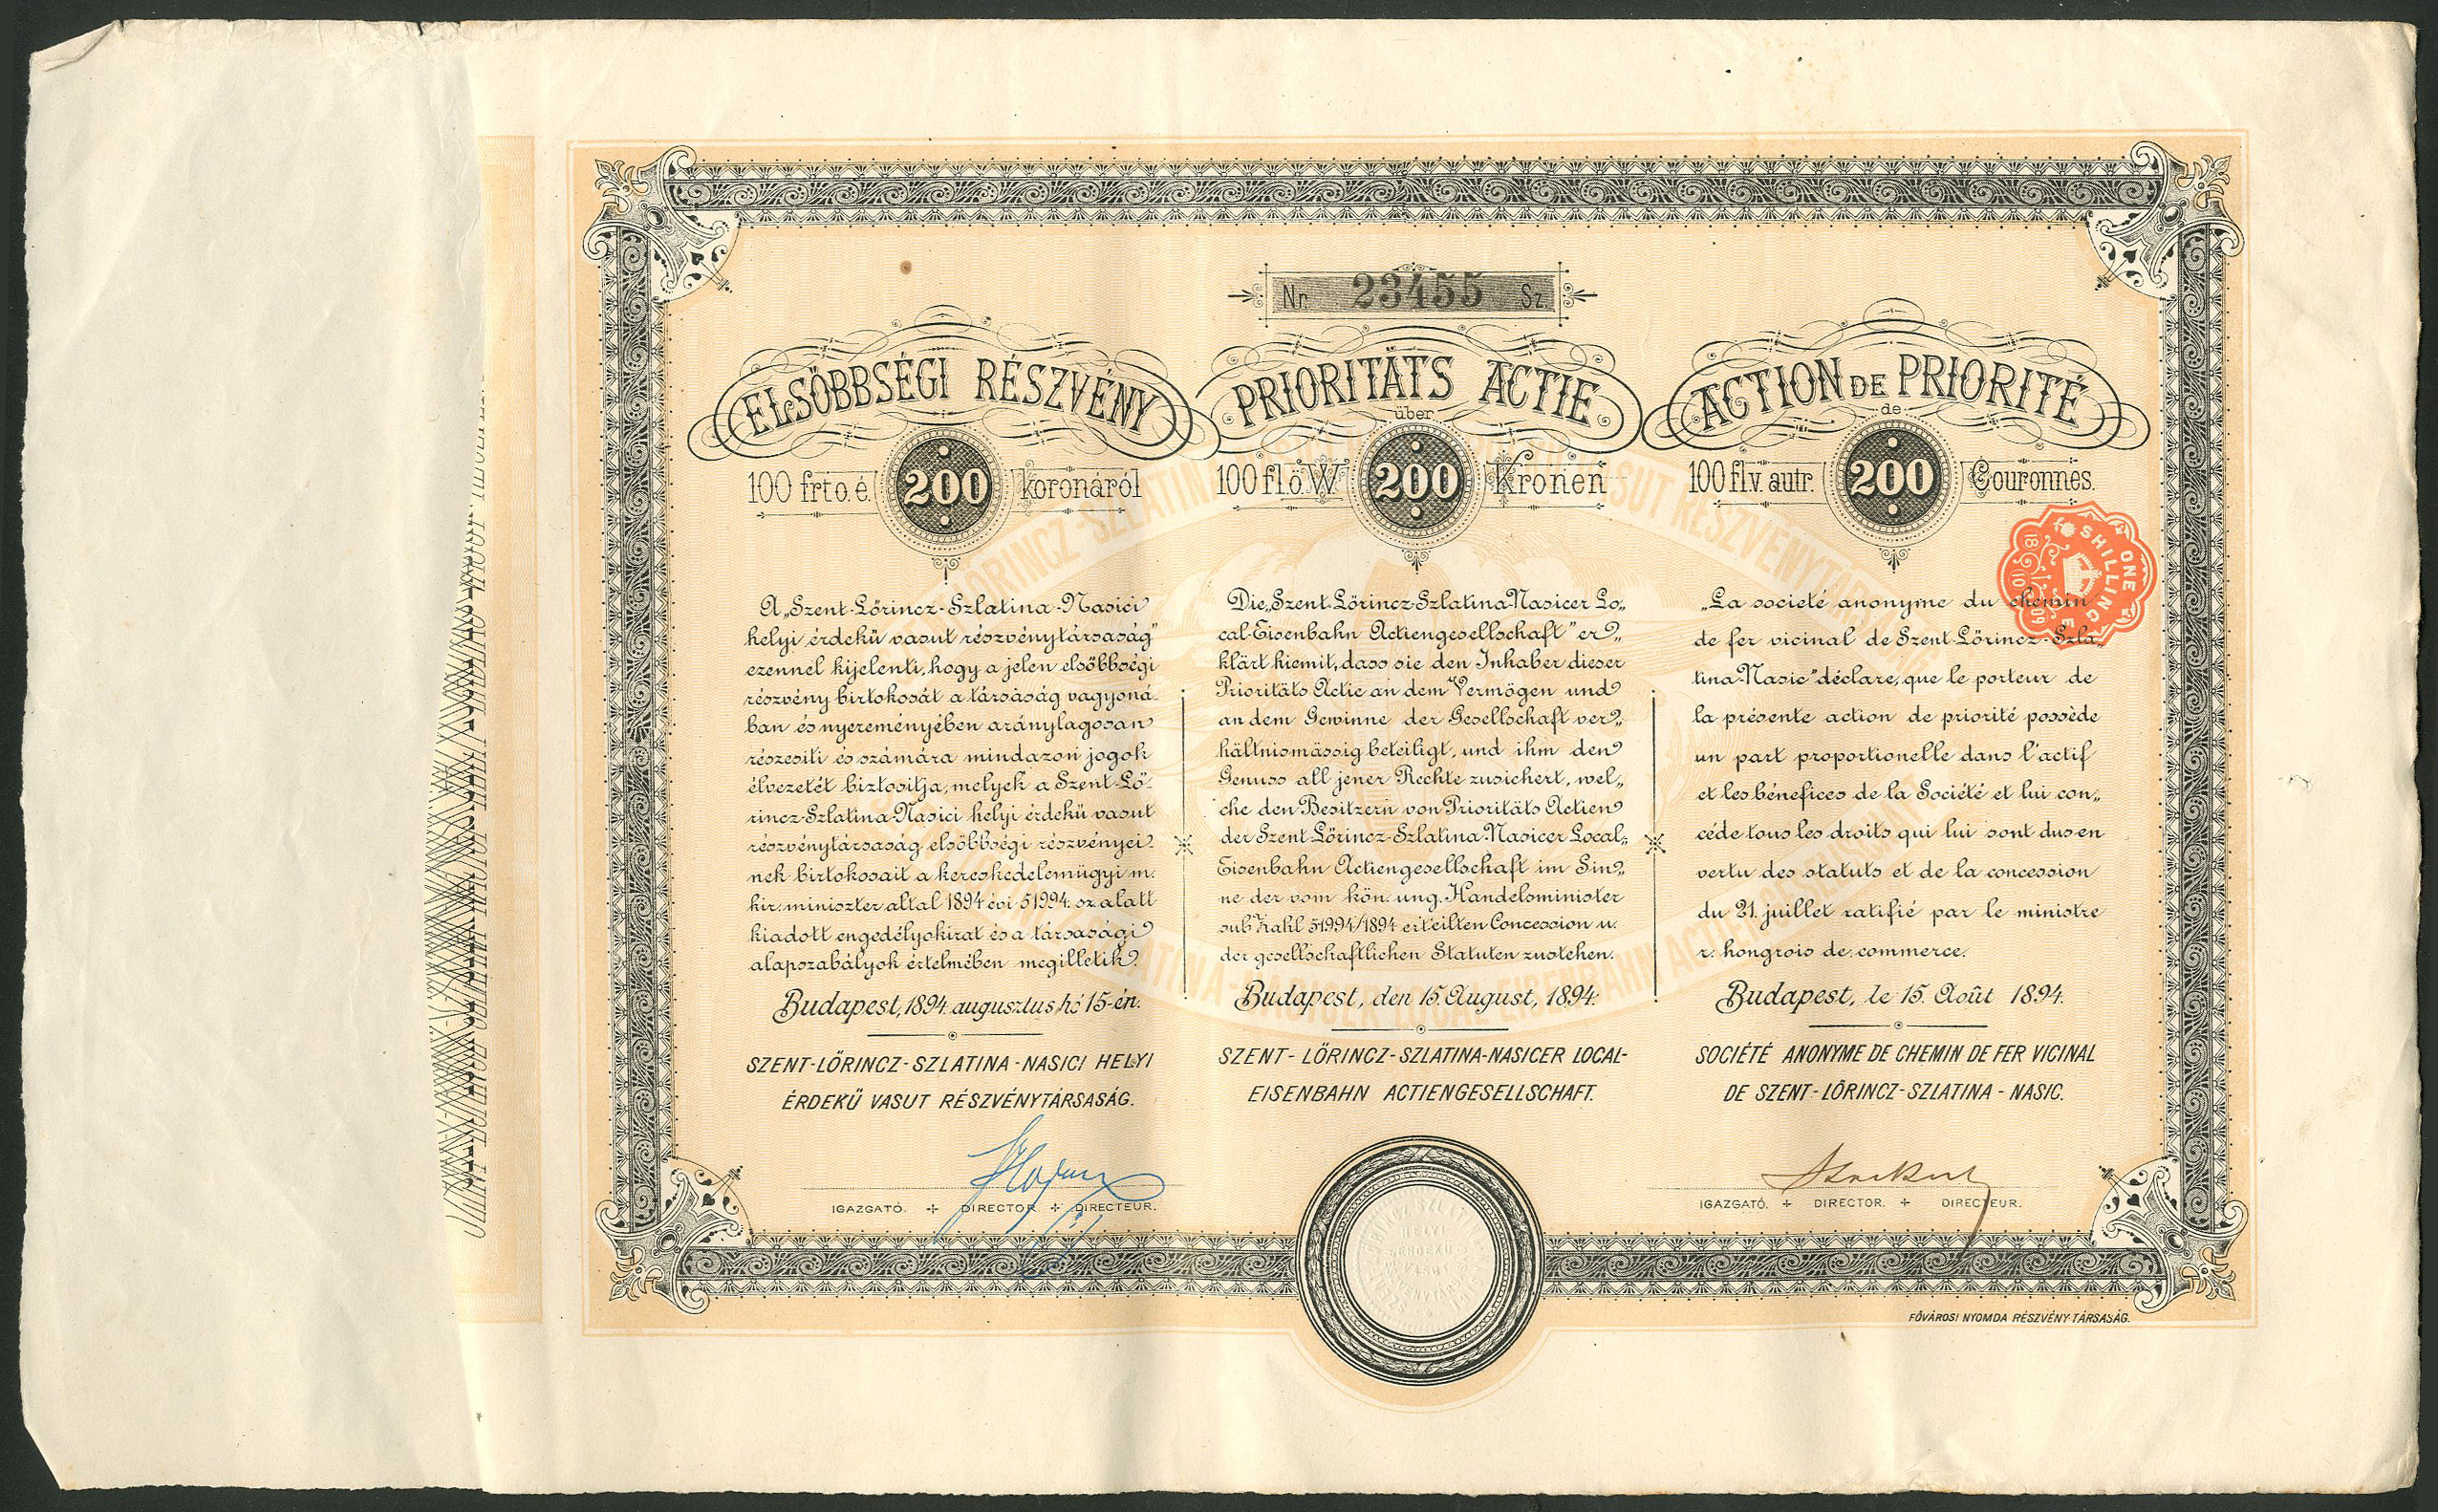 Nr. 23455 Sz.
ELSÖBBSÉGI RÉSZVÉNY
100 frt o. é. 200 koronáról
A „Szent-Lőrincz-Szlatina-Nasici
helyi érdekü vasut részvénytársaság"
ezennel kijelenti, hogy a jelen elsőbbségi
részvény birtokosát a társaság vagyoná-
ban és nyereményében aránylagosan
részesiti és számára mindazon jogok
élvezetét biztositja, melyek a Szent-Lő-
rincz-Szlatina-Nasici helyi érdekü vasut
részvénytársaság elsőbbségi részvényei-
nek birtokosait a kereskedelemügyi m.
kir. miniszter által 1894 évi 51994. sz. alatt
kiadott engedélyokirat és a társasági
alapszabályok értelmében megilletik.
Budapest, 1894. augusztus hó 15-én.
SZENT-LŐRINCZ-SZLATINA-NASICI HELYI
ÉRDEKŰ VASUT RÉSZVÉNYTÁRSASÁG.
IGAZGATÓ. + DIRECTOR. + DIRECTEUR.
PRIORITÄTS ACTIE
über
100 fl. ö. W. 200 Kronen
Die „Szent-Lőrincz-Szlatina-Nasicer Lo„
cal-Eisenbahn Actiengesellschaft" er„
klärt hiemit, dass sie den Inhaber dieser
Prioritäts Actie an dem Vermögen und
an dem Gewinne der Gesellschaft ver„
hältnismässig beteiligt, und ihm den
Genuss all jener Rechte zusichert, wel„
che den Besitzern von Prioritäts Actien
der Szent Lőrincz-Szlatina-Nasicer Local„
Eisenbahn Actiengesellschaft im Sin„
ne der vom kön. ung. Handelsminister
sub Zahl 51994/1894 erteilten Concession u.
der gesellschaftlichen Statuten zustehen.
Budapest, den 15. August, 1894.
SZENT-LŐRINCZ-SZLATINA-NASICER LOCAL-
EISENBAHN ACTIENGESELLSCHAFT.
ACTION DE PRIORITÉ
de
100 fl v. autr. 200 Couronnes.
ONE SHILLING
18 10 09
„La societé anonyme du chemin
de fer vicinal de Szent Lőrincz-Szla„
tina-Nasic" déclare, que le porteur de
la présente action de priorité possède
un part proportionelle dans l'actif
et les bénefices de la Société et lui con„
céde tous les droits qui lui sont dus en
vertu des statuts et de la concession
du 21. juillet ratifié par le ministre
r. hongrois de commerce.
Budapest, le 15. Août 1894.
SOCIÉTÉ ANONYME DE CHEMIN DE FER VICINAL
DE SZENT-LŐRINCZ-SZLATINA-NASIC.
IGAZGATÓ. + DIRECTOR. + DIRECTEUR.
HELYI
ÉRDEKŰ
VASUT
FŐVÁROSI NYOMDA RÉSZVÉNY-TÁRSASÁG.